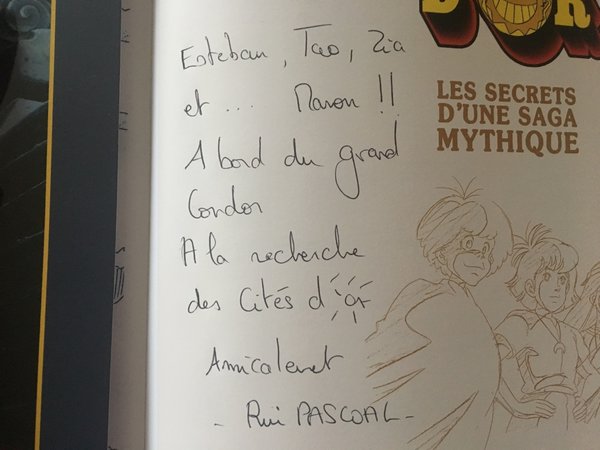 Esteban, Tao, Zia
et ... Manon !!
A bord du grand
Condor
A la recherche
des Cités d'or
Amicalement
- Rui PASCOAL -
D'OR
LES SECRETS
D'UNE SAGA
MYTHIQUE